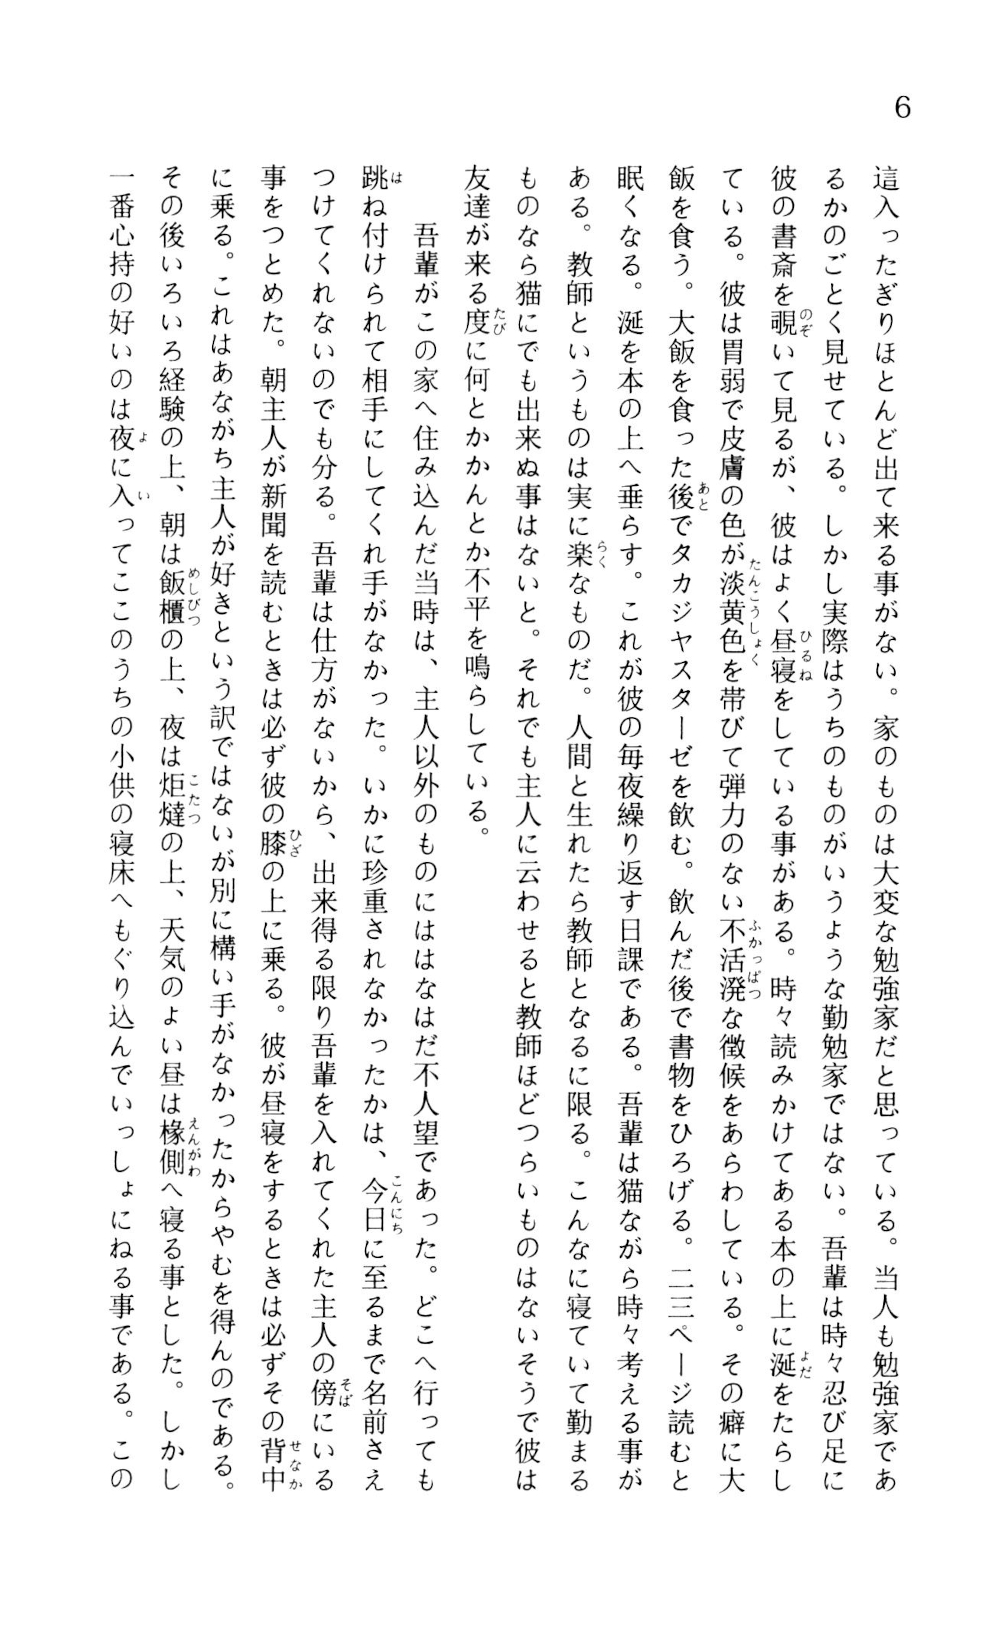 6
這入ったぎりほとんど出て来る事がない。家のものは大変な勉強家だと思っている。当人も勉強家であ
るかのごとく見せている。しかし実際はうちのものがいうような勤勉家ではない。吾輩は時々忍び足に
彼の書斎を覗いて見るが、彼はよく昼寝をしている事がある。時々読みかけてある本の上に涎をたらし
ている。彼は胃弱で皮膚の色が淡黄色を帯びて弾力のない不活溌な徴候をあらわしている。その癖に大
飯を食う。大飯を食った後でタカジヤスターゼを飲む。飲んだ後で書物をひろげる。二三ページ読むと
眠くなる。涎を本の上へ垂らす。これが彼の毎夜繰り返す日課である。吾輩は猫ながら時々考える事が
ある。教師というものは実に楽なものだ。人間と生れたら教師となるに限る。こんなに寝ていて勤まる
ものなら猫にでも出来ぬ事はないと。それでも主人に云わせると教師ほどつらいものはないそうで彼は
友達が来る度に何とかかんとか不平を鳴らしている。
　吾輩がこの家へ住み込んだ当時は、主人以外のものにははなはだ不人望であった。どこへ行っても
跳ね付けられて相手にしてくれ手がなかった。いかに珍重されなかったかは、今日に至るまで名前さえ
つけてくれないのでも分る。吾輩は仕方がないから、出来得る限り吾輩を入れてくれた主人の傍にいる
事をつとめた。朝主人が新聞を読むときは必ず彼の膝の上に乗る。彼が昼寝をするときは必ずその背中
に乗る。これはあながち主人が好きという訳ではないが別に構い手がなかったからやむを得んのである。
その後いろいろ経験の上、朝は飯櫃の上、夜は炬燵の上、天気のよい昼は椽側へ寝る事とした。しかし
一番心持の好いのは夜に入ってここのうちの小供の寝床へもぐり込んでいっしょにねる事である。この